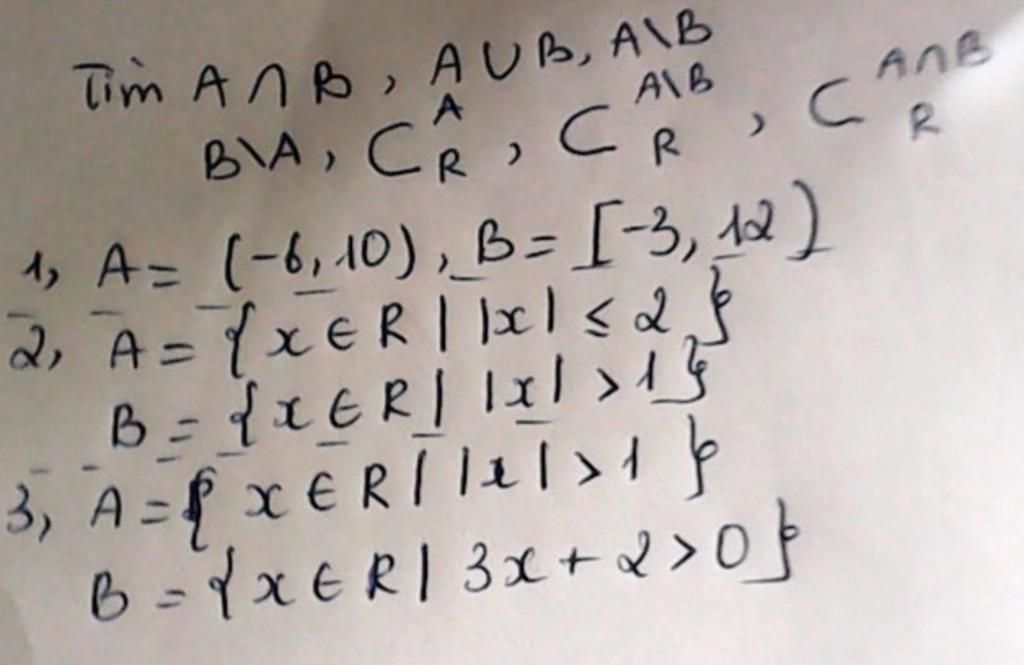 Tìm A∩B, A∪B, A\B
B\A, C_R^A, C_R^{A\B}, C_R^{A∩B}
1, A = (-6, 10), B = [-3, 12)
2, A = {x ∈ R | |x| ≤ 2}
B = {x ∈ R | |x| > 1}
3, A = {x ∈ R | |x| > 1}
B = {x ∈ R | 3x + 2 > 0}